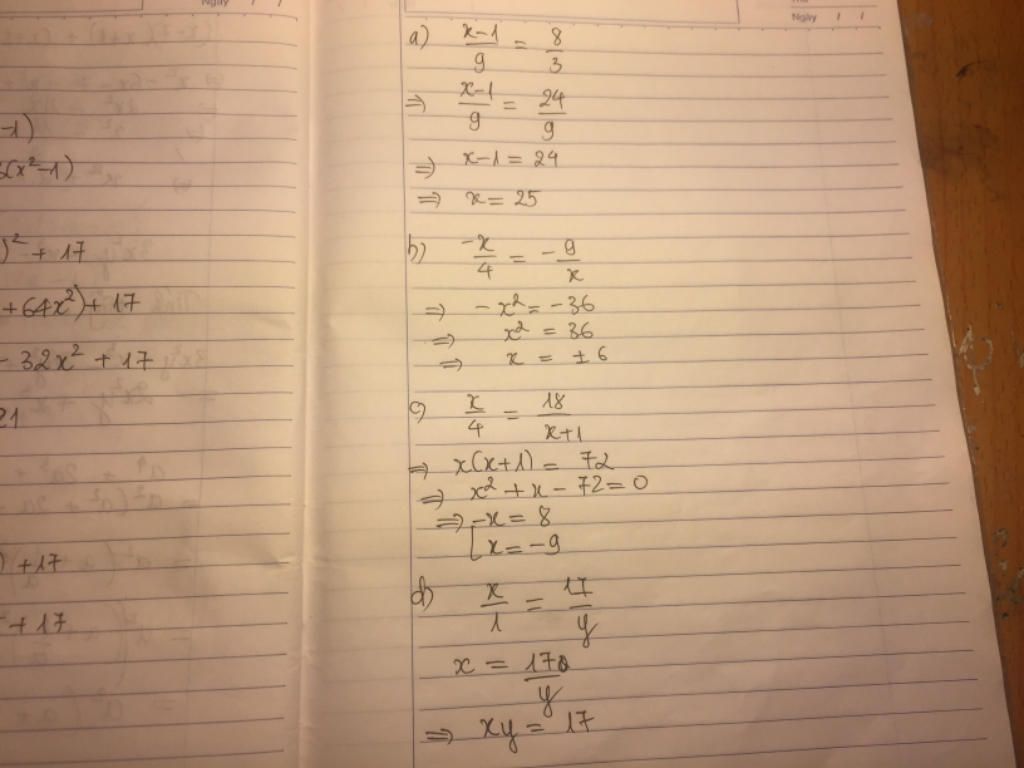 Ngày / /
-1)
3(x²-1)
)² + 17
+ 64x²) + 17
- 32x² + 17
21
) + 17
+ 17
Ngày / /
a) (x-1)/9 = 8/3
=> (x-1)/9 = 24/9
=> x-1 = 24
=> x = 25
b) -x/4 = -9/x
=> -x² = -36
=> x² = 36
=> x = ±6
c) x/4 = 18/(x+1)
=> x(x+1) = 72
=> x² + x - 72 = 0
=> [x = 8
[x = -9
d) x/1 = 17/y
x = 17/y
=> xy = 17